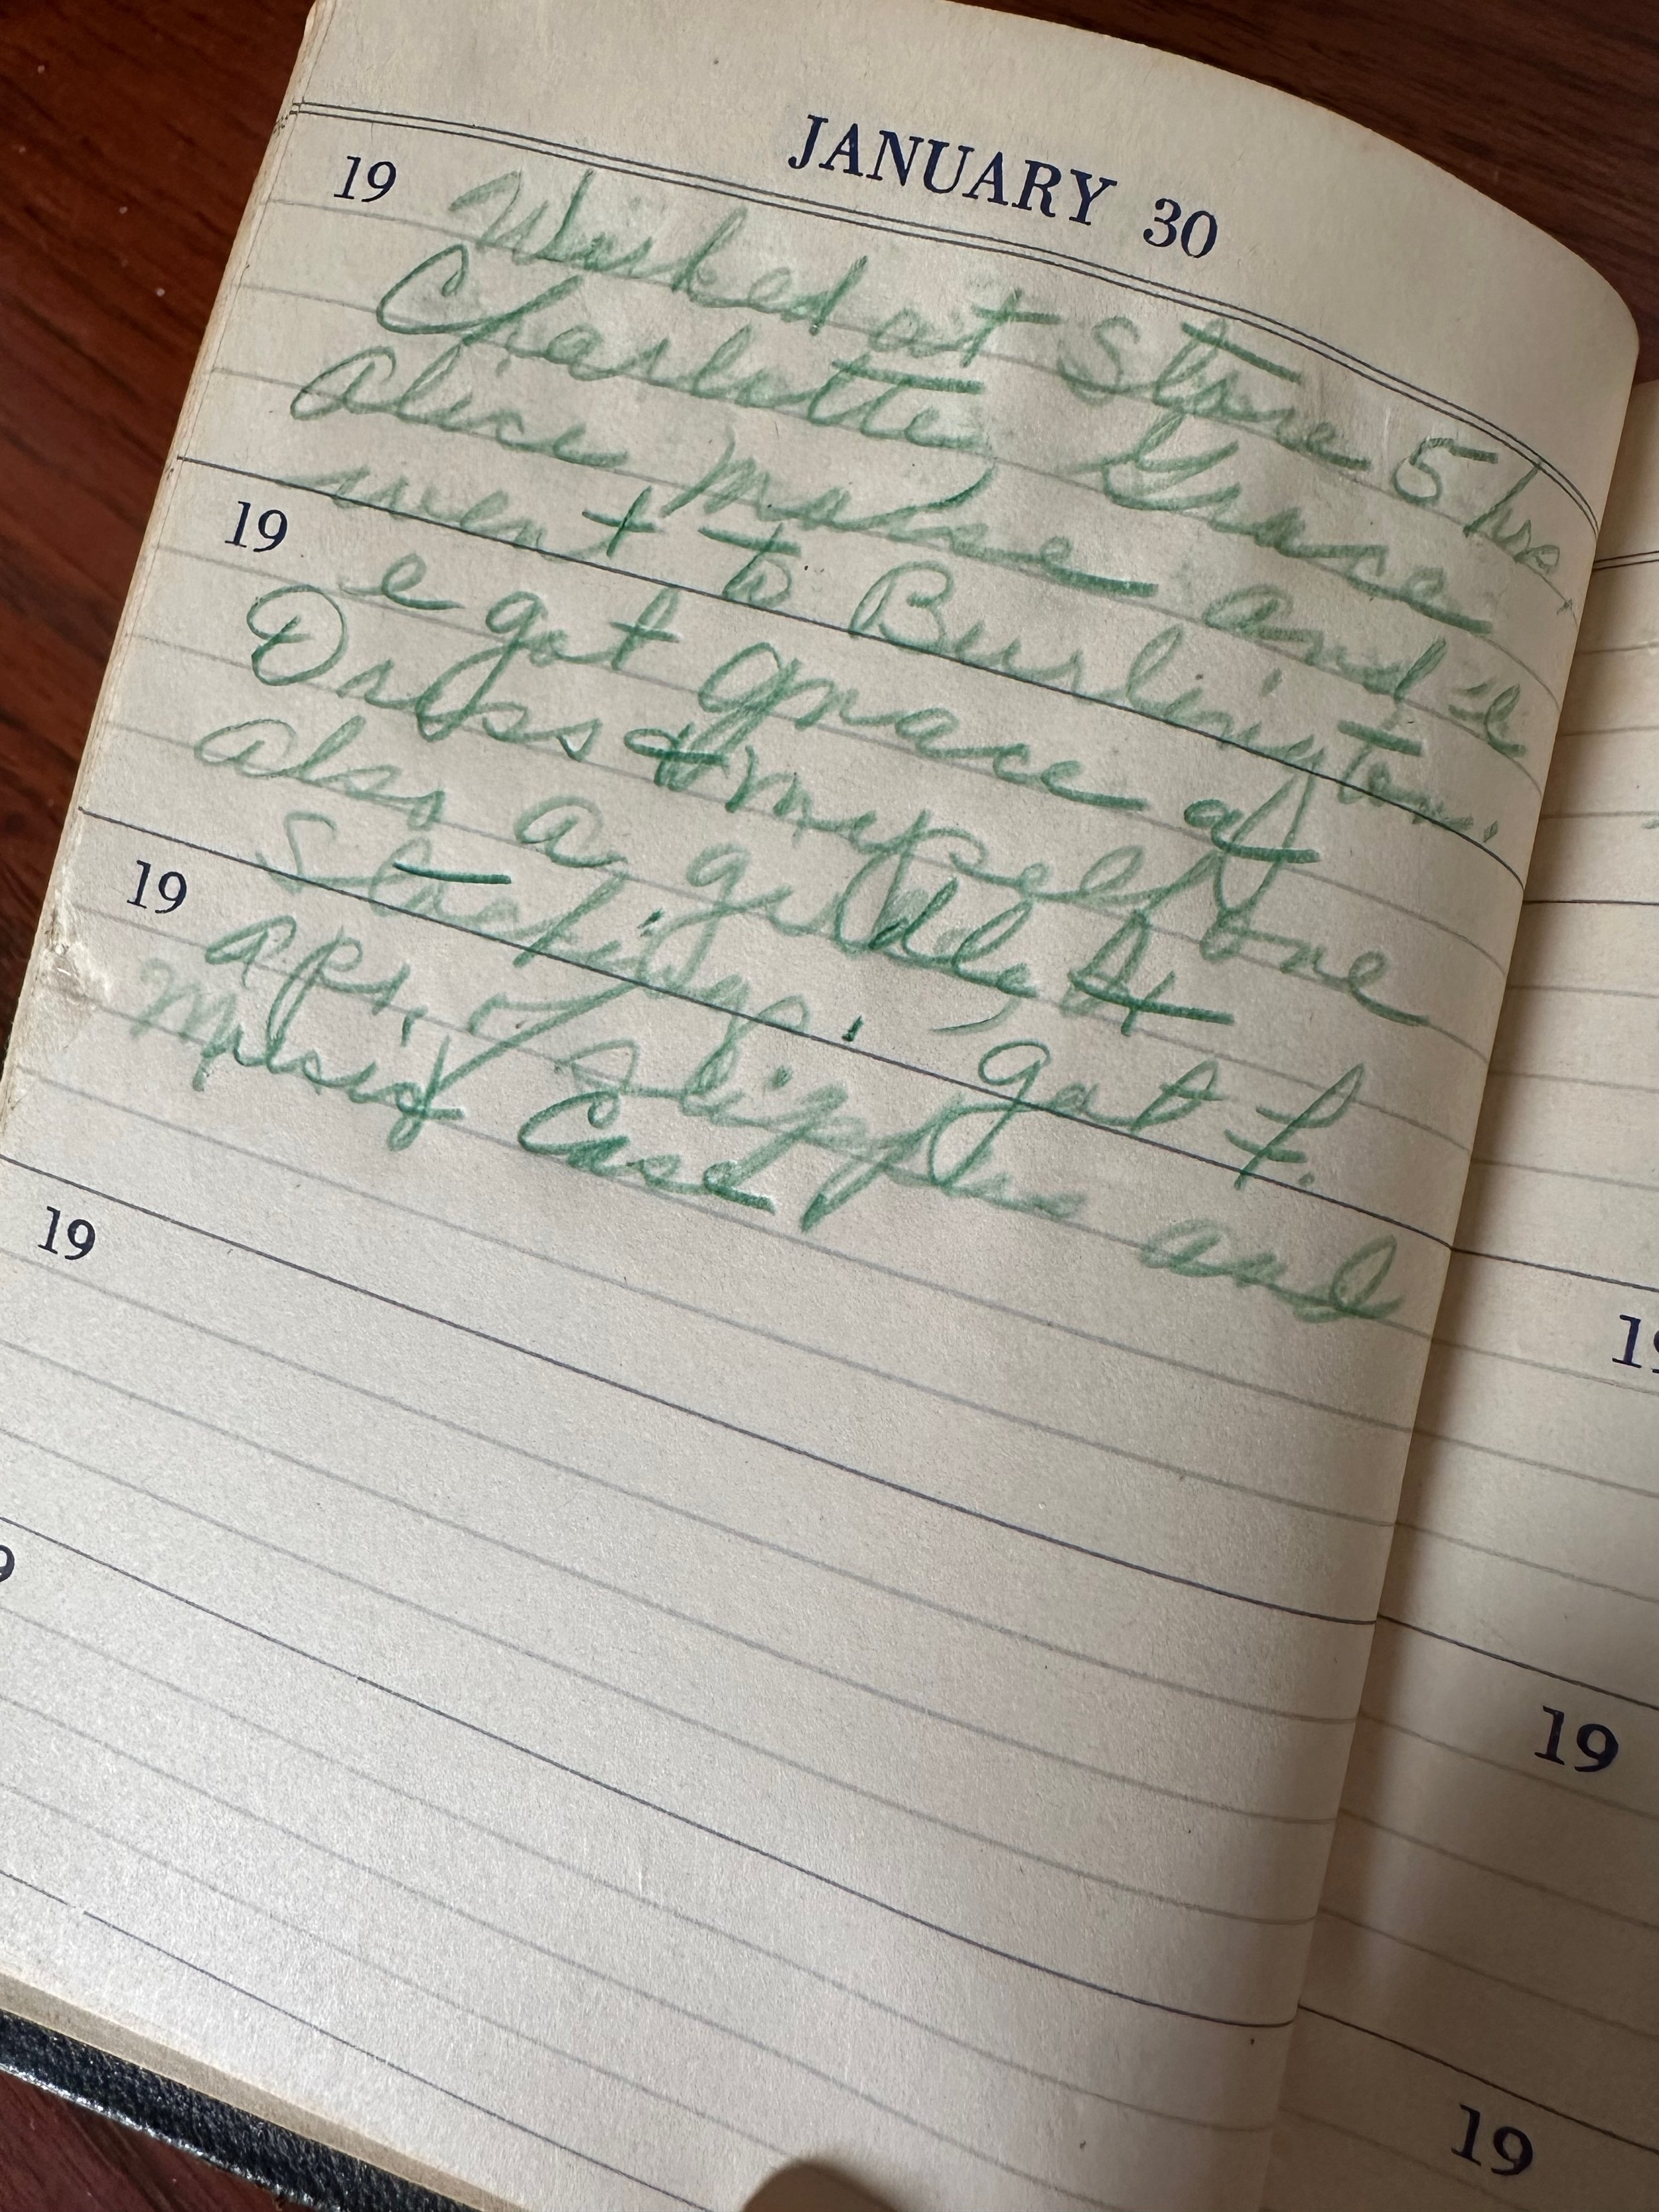 JANUARY 30
19 Worked at Store 5 hrs
Charlotte Grace
Alice Morse and e
went to Burlington.
19
e got Grace a
Dress & myself one
also a girdle &
19
Stockings, got F.
a pr. of slippers and
Music Case
19
19
19
19